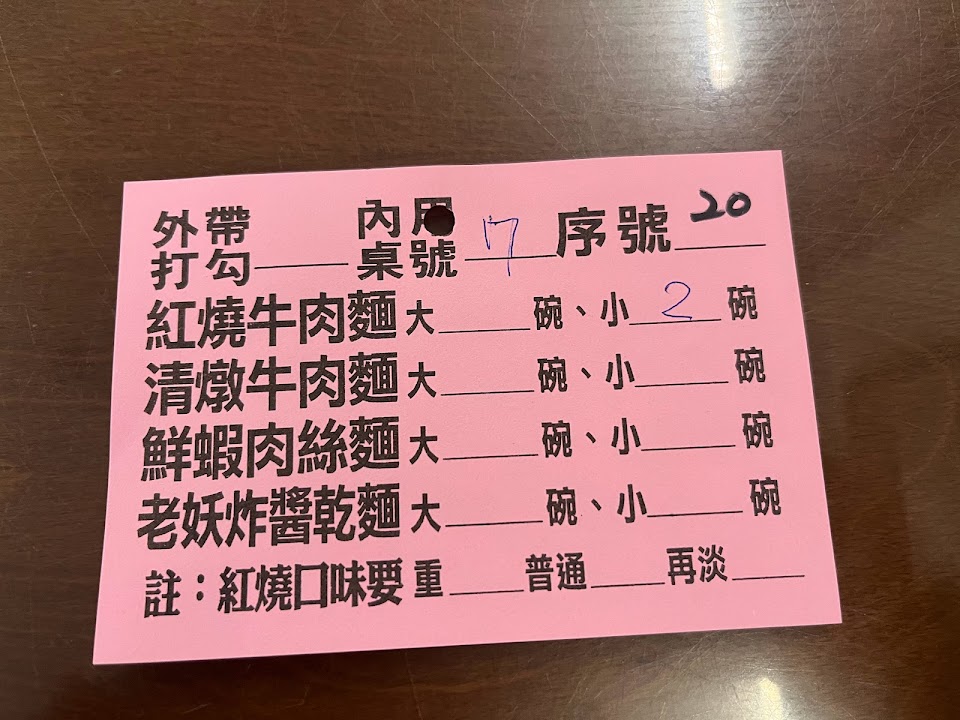 外帶 內用
打勾 桌號 17 序號 20
紅燒牛肉麵 大 碗、小 2 碗
清燉牛肉麵 大 碗、小 碗
鮮蝦肉絲麵 大 碗、小 碗
老妖炸醬乾麵 大 碗、小 碗
註：紅燒口味要 重 普通 再淡